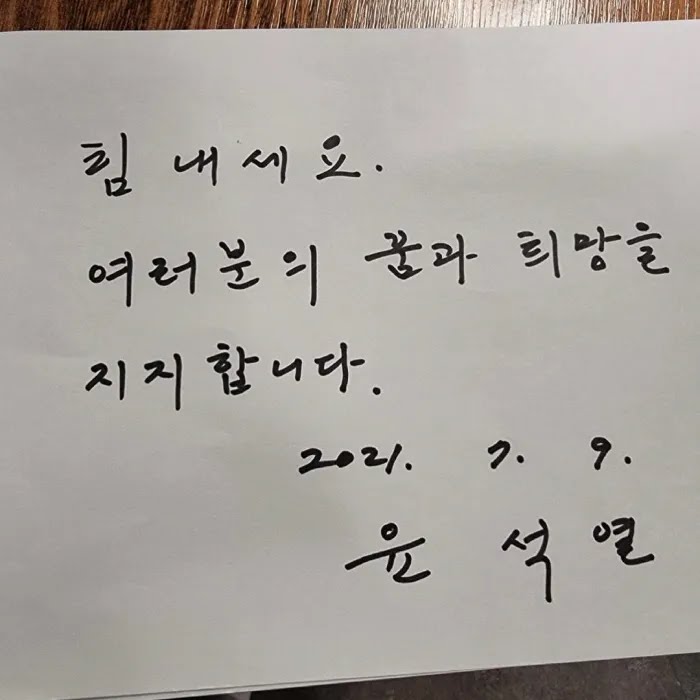 힘 내세요.
여러분의 꿈과 희망을
지지합니다.
2021. 7. 9.
윤 석 열